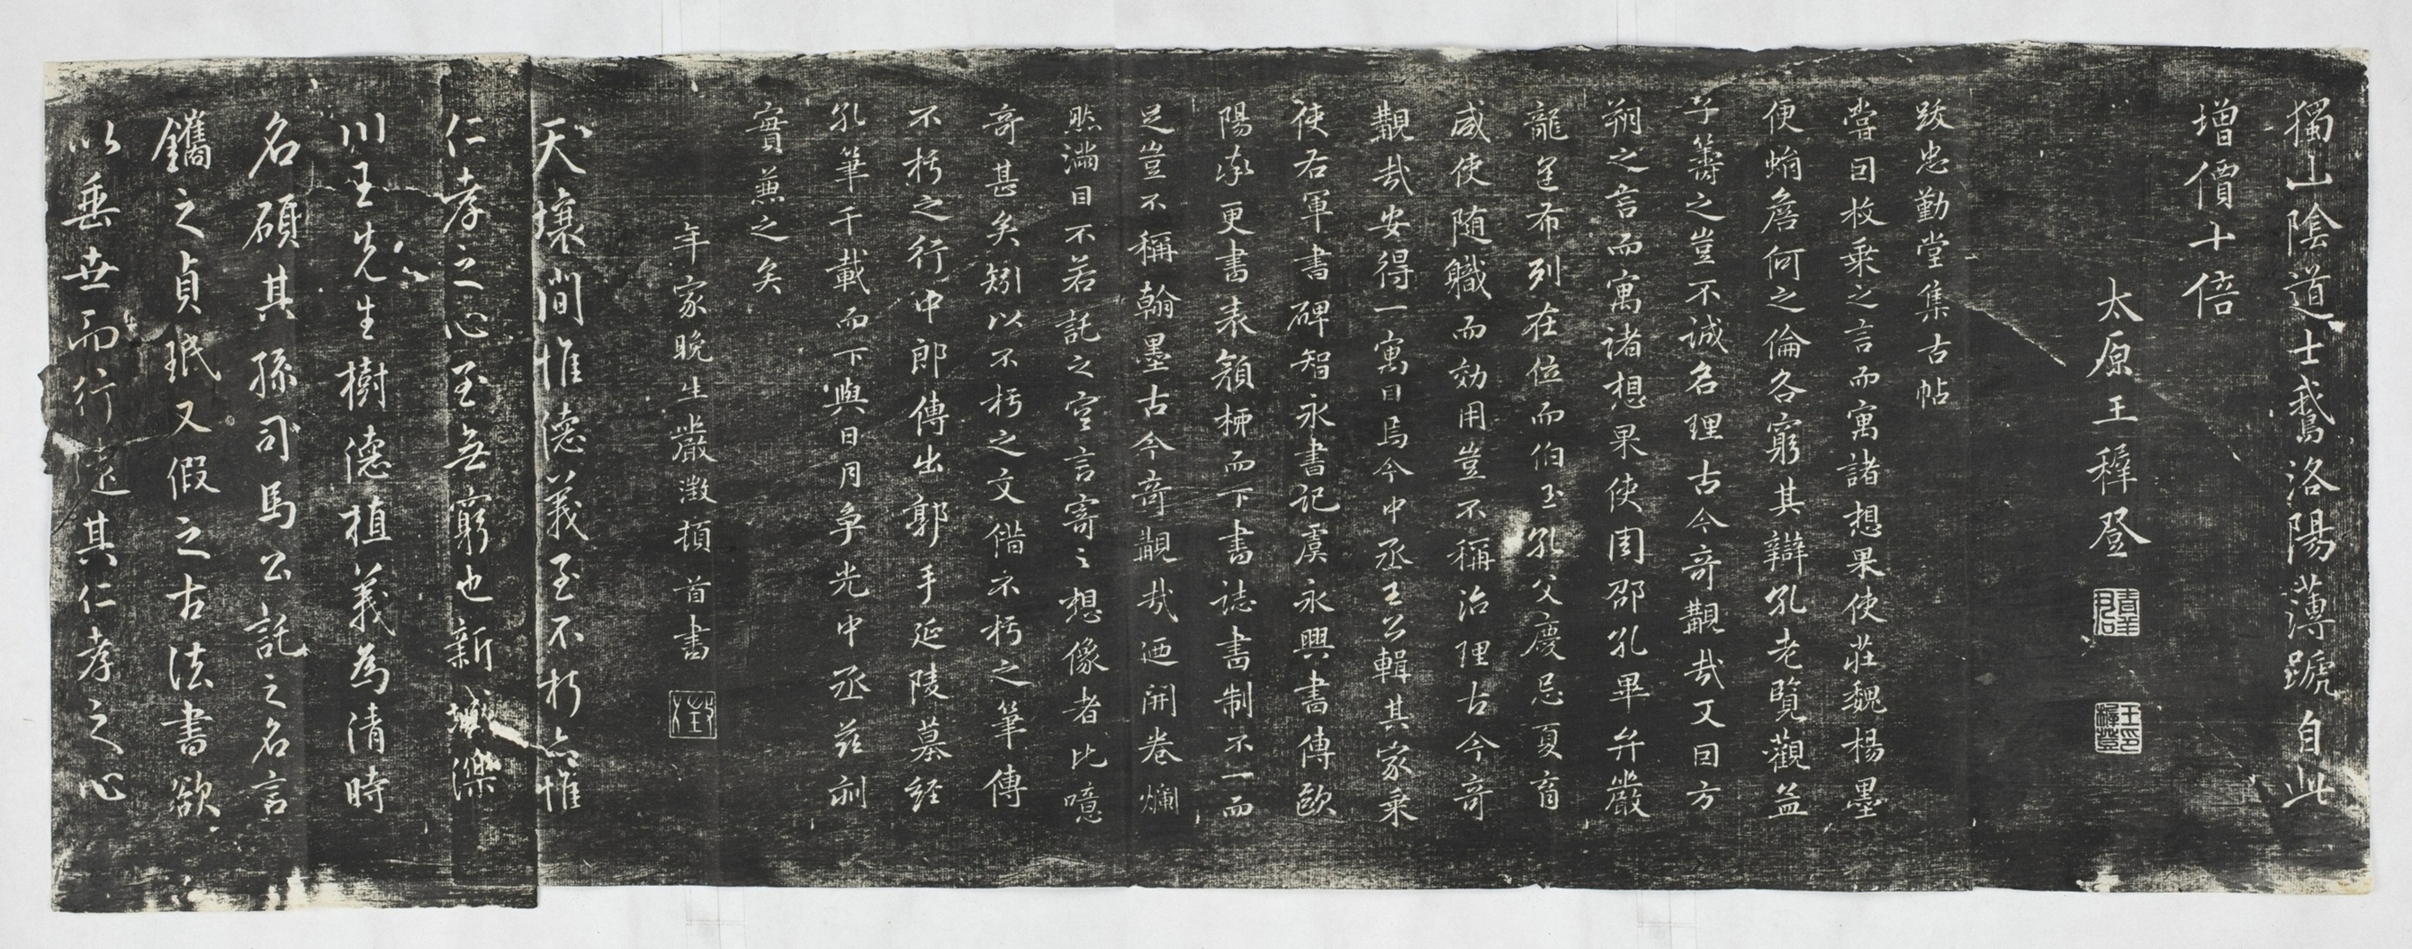 獨山陰道士鵞洛陽薄蹏自此
增價十倍
太原王穉登
王穉登印
跋忠勤堂集古帖
嘗曰枚乘之言而寓諸想果使莊魏楊墨
便蜎詹何之倫各窮其辯孔老覽觀孟
子籌之豈不誠名理古今奇觀哉又曰方
朔之言而寓諸想果使周邵孔畢弁嚴
龍逢布列在位而伯玉孔父慶忌夏育
咸使随職而効用豈不稱治理古今奇
觀哉安得一寓目焉今中丞王公輯其家乘
使右軍書碑智永書記虞永興書傳歐
陽率更書表顏柳而下書誌書制不一而
足豈不稱翰墨古今奇觀哉迺開卷爛
然滿目不若託之空言寄之想像者比噫
奇甚矣矧以不朽之文偕不朽之筆傳
不朽之行中郎傳出郭手延陵墓經
孔筆千載而下與日月争光中丞茲刻
實兼之矣
年家晚生嚴澂頓首書
天壤間惟德義至不朽亦惟
仁孝之心至無窮也新城濼
川王先生樹德植義為清時
名碩其孫司馬公託之名言
鐫之貞珉又假之古法書欲
以垂世而行遠其仁孝之心